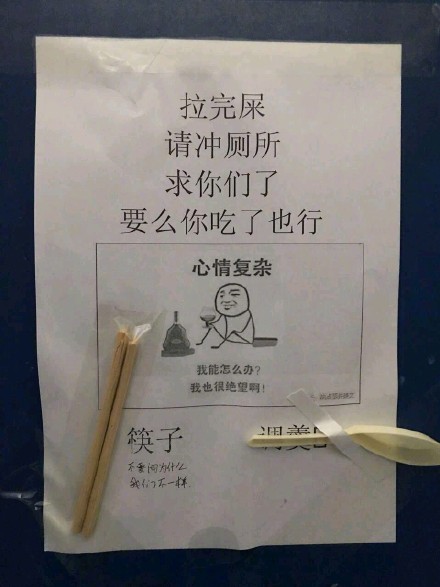 拉完屎
请冲厕所
求你们了
要么你吃了也行
心情复杂
我能怎么办?
我也很绝望啊!
筷子
调羹
不要问为什么
我们不一样.